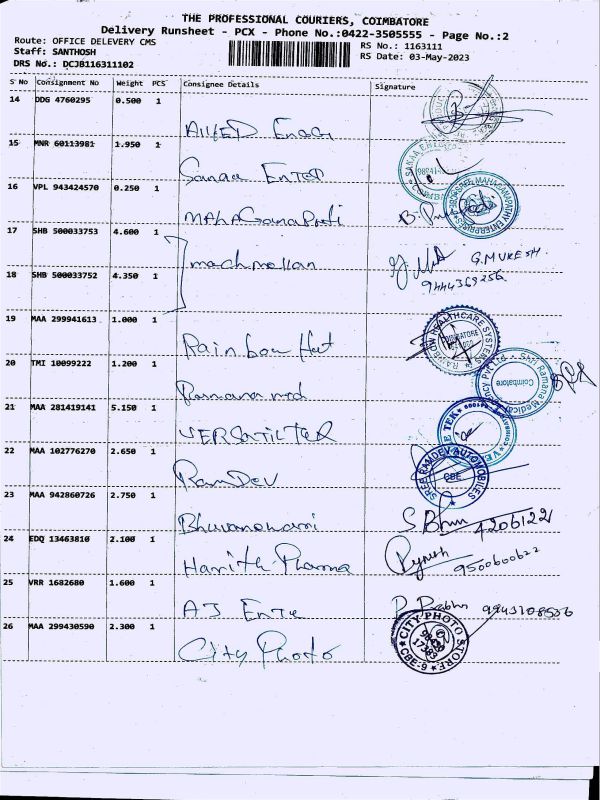 THE PROFESSIONAL COURIERS, COIMBATORE
Delivery Runsheet - PCX - Phone No.:0422-3505555 - Page No.:2
Route: OFFICE DELEVERY CMS
RS No.: 1163111
Staff: SANTHOSH
RS Date: 03-May-2023
DRS No.: DCJB116311102
S No Consignment No Weight PCS Consignee Details Signature
14 DDG 4760295 0.500 1
15 MNR 60113981 1.950 1
Sanaa Enter
16 VPL 943424570 0.250 1
MAHA Ganapati
17 SHB 500033753 4.600 1
G. MUKESH.
9444369256
18 SHB 500033752 4.350 1
19 MAA 299941613 1.000 1
Rainbow
RAINBOW HEALTHCARE SYSTEMS
20 TMI 10099222 1.200 1
Ramana med
Coimbatore
21 MAA 281419141 5.150 1
VERSATILTEK
22 MAA 102776270 2.650 1
RamDev
SREE RAMDEV AUTOMOBILES
CBE
23 MAA 942860726 2.750 1
24 EDQ 13463810 2.100 1
Harrith Pharma
9500600622
25 VRR 1682680 1.600 1
AJ Ente
P. Prabhu
26 MAA 299430590 2.300 1
City Photo
CITY PHOTO STORE
CBE-9